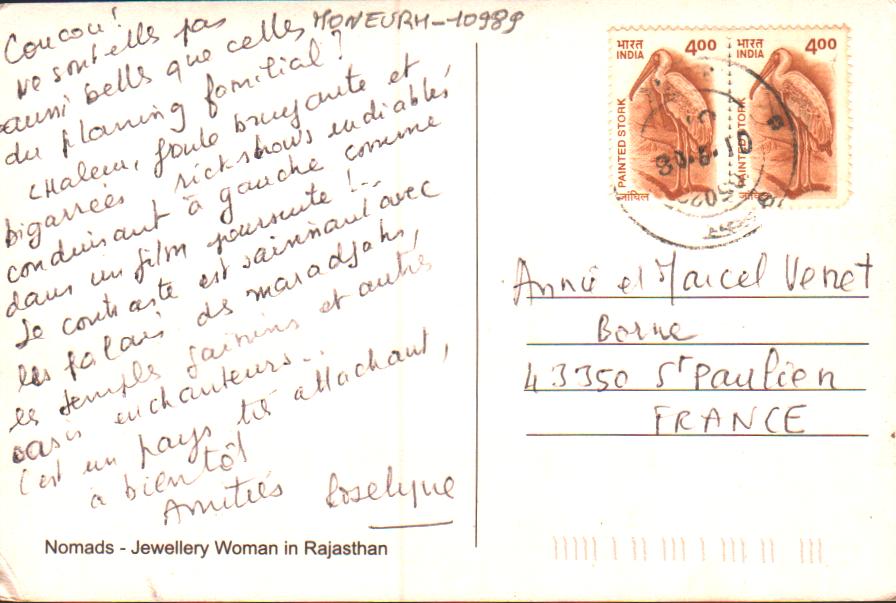 Coucou! MONEURH-10989
ne sont elles pas
aussi belles que celles
du planning familial?
Chaleur, foule bruyante et
bigarrées rickshows endiablés
conduisant à gauche comme
dans un film poursuite!..
le contraste est saisissant avec
les palais de maradjahs,
les temples jaïnins et autres
oasis enchanteurs...
C'est un pays très attachant,
à bientôt
Amitiés Roselyne
Nomads - Jewellery Woman in Rajasthan
भारत INDIA 4.00
PAINTED STORK
जांघिल
भारत INDIA 4.00
PAINTED STORK
Annie et Marcel Venet
Borne
43350 St Paulien
FRANCE